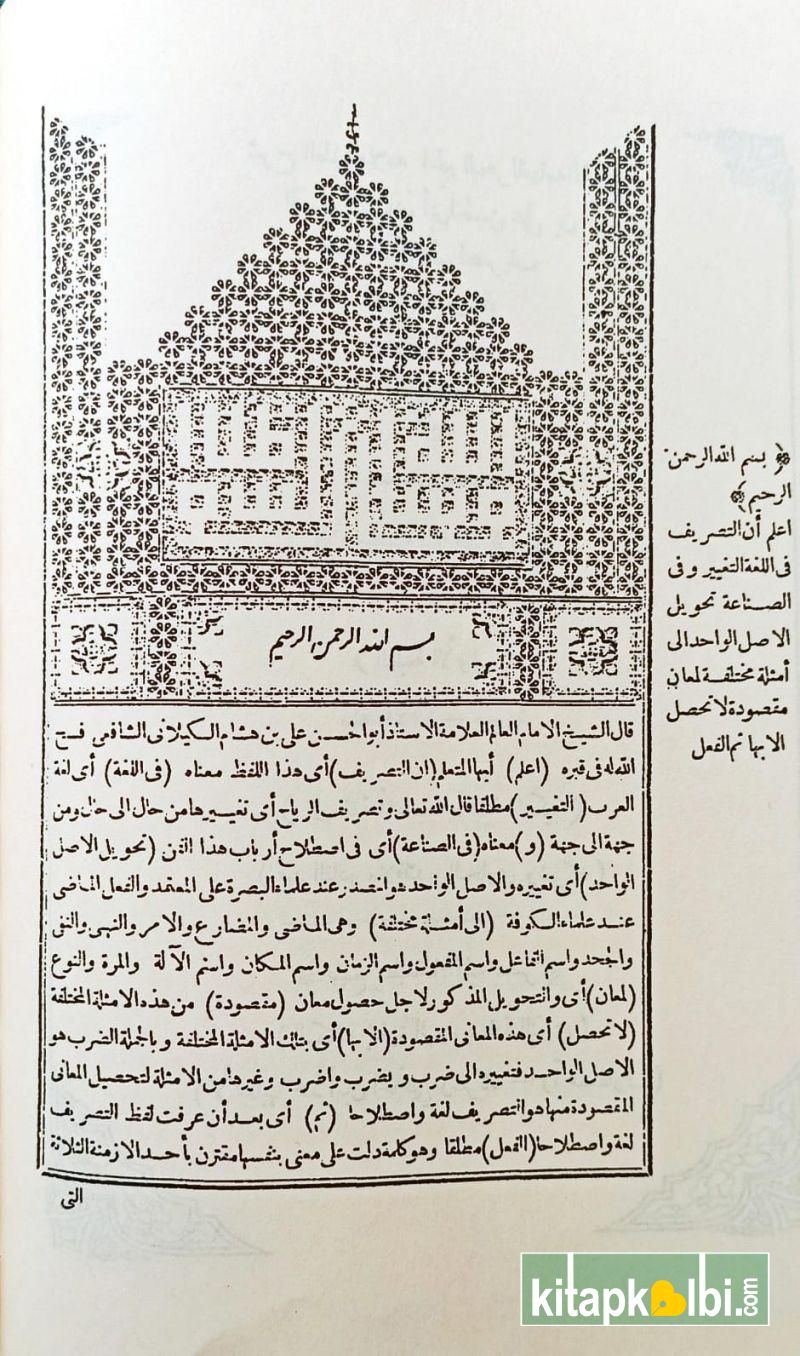 بسم الله الرحمن الرحيم
قال الشيخ الامام العالم العلامة الاستاذ أبو الحسن على بن هشام الكيلانى الشافعى فسح
الله له فى قبره (اعلم) أيها المتعلم (ان التصريف) أى هذا اللفظ معناه (فى اللغة) أى لغة
العرب (التغيير) مطلقا قال الله تعالى وتصريف الرياح أى تغييرها من حال الى حال ومن
جهة الى جهة (و) معناه (فى الصناعة) أى فى اصطلاح أرباب هذا الفن (تحويل الاصل
الواحد) أى تغييره والاصل الواحد هو المصدر عند علماء البصرة على المعتمد والفعل الماضى
عند علماء الكوفة (الى أمثلة مختلفة) وهى الماضى والمضارع والامر والنهى والنفى
والجحد واسم الفاعل واسم المفعول واسم الزمان واسم المكان واسم الآلة والمرة والنوع
(لمعان) أى والتحويل المذكور لاجل حصول معان (مقصودة) من هذه الامثلة المختلفة
(لا تحصل) أى هذه المعانى المقصودة (الا بها) أى بتلك الامثلة المختلفة وبالجملة الضرب هو
الاصل الواحد فتغييره الى ضرب ويضرب واضرب وغيرها من الامثلة لتحصيل المعانى
المقصودة منها هو التصريف لغة واصطلاحا (ثم) أى بعد أن عرفت لفظ التصريف
لغة واصطلاحا (الفعل) مطلقا وهو كلمة دلت على معنى بنفسها مقترن بأحد الازمنة الثلاثة
التى
﴿ بسم الله الرحمن
الرحيم ﴾
اعلم أن التصريف
فى اللغة التغيير وفى
الصناعة تحويل
الاصل الواحد الى
أمثلة مختلفة لمعان
مقصودة لا تحصل
الا بها ثم الفعل
kitapkalbi.com